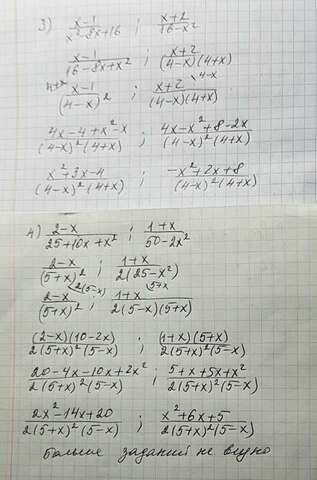 3) (x-1)/(x²-8x+16) ; (x+2)/(16-x²)
(x-1)/(16-8x+x²) ; (x+2)/((4-x)(4+x))
4+x (x-1)/(4-x)² ; (x+2)/((4-x)(4+x)) 4-x
(4x-4+x²-x)/((4-x)²(4+x)) ; (4x-x²+8-2x)/((4-x)²(4+x))
(x²+3x-4)/((4-x)²(4+x)) ; (-x²+2x+8)/((4-x)²(4+x))
4) (2-x)/(25+10x+x²) ; (1+x)/(50-2x²)
(2-x)/(5+x)² ; (1+x)/(2(25-x²))
(2-x)/(5+x)² 2(5-x) ; (1+x)/(2(5-x)(5+x)) 5+x
((2-x)(10-2x))/(2(5+x)²(5-x)) ; ((1+x)(5+x))/(2(5+x)²(5-x))
(20-4x-10x+2x²)/(2(5+x)²(5-x)) ; (5+x+5x+x²)/(2(5+x)²(5-x))
(2x²-14x+20)/(2(5+x)²(5-x)) ; (x²+6x+5)/(2(5+x)²(5-x))
больше заданий не видно